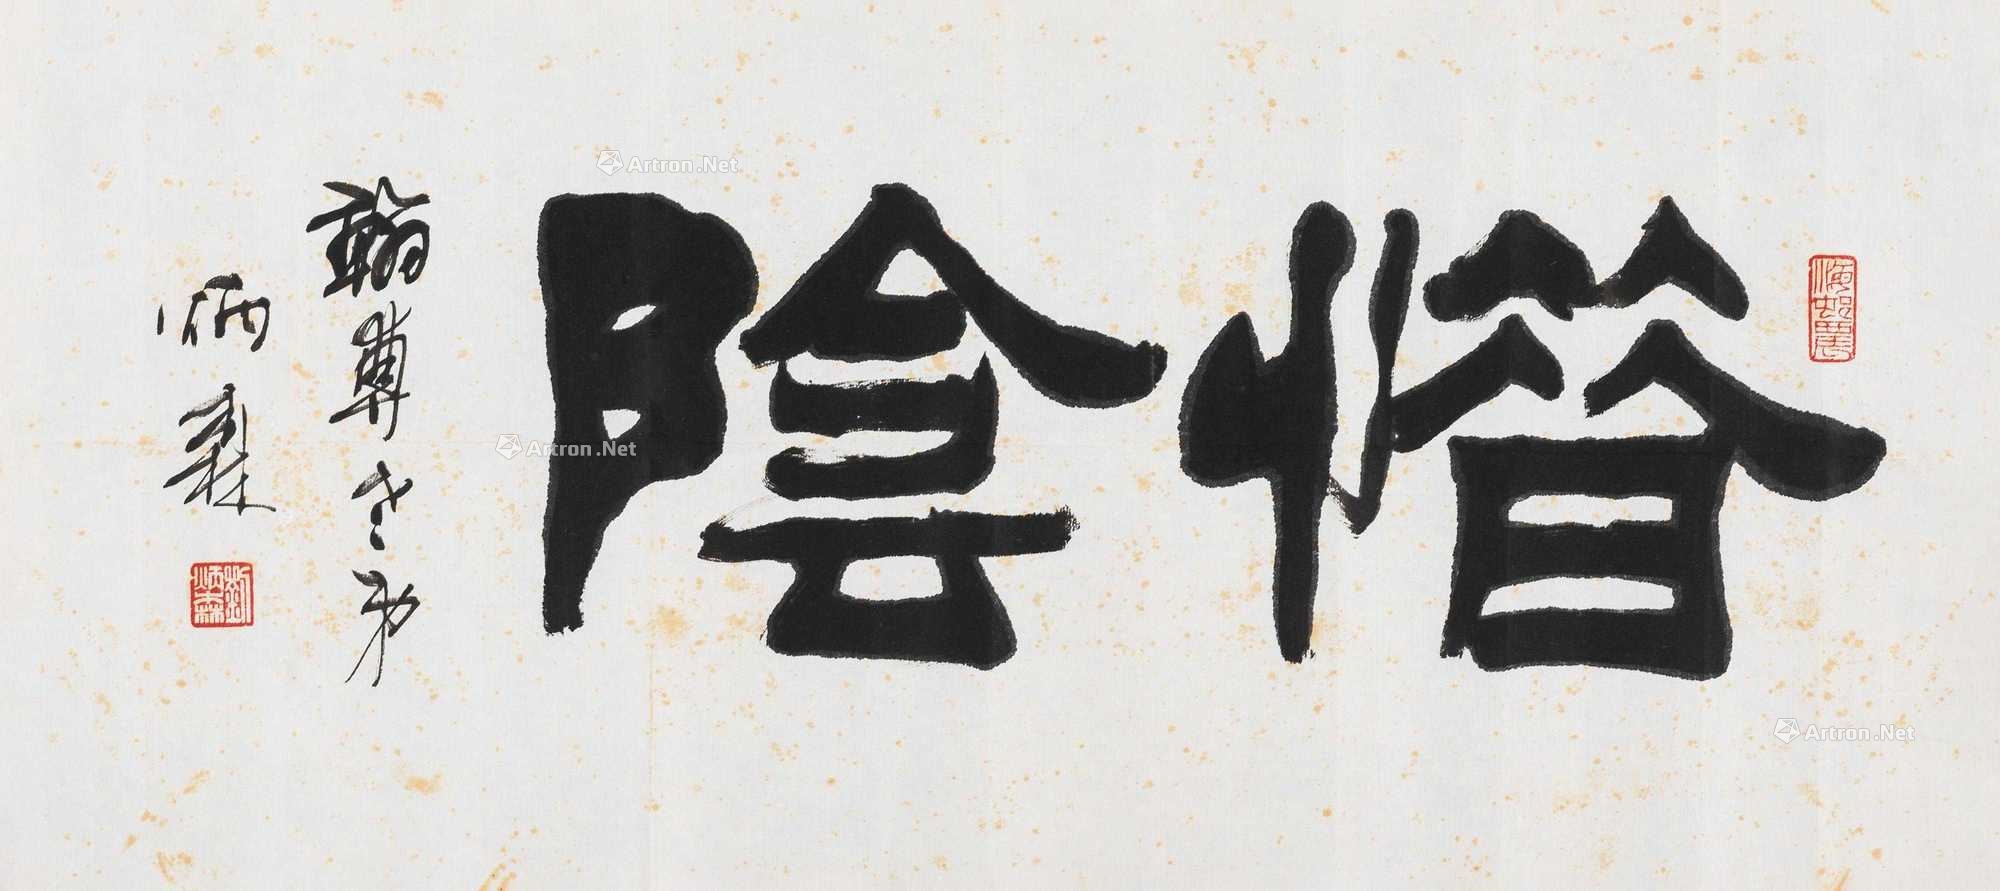 惜陰
翰尊老弟
炳森
劉炳森
Artron.Net
Artron.Net
Artron.Net